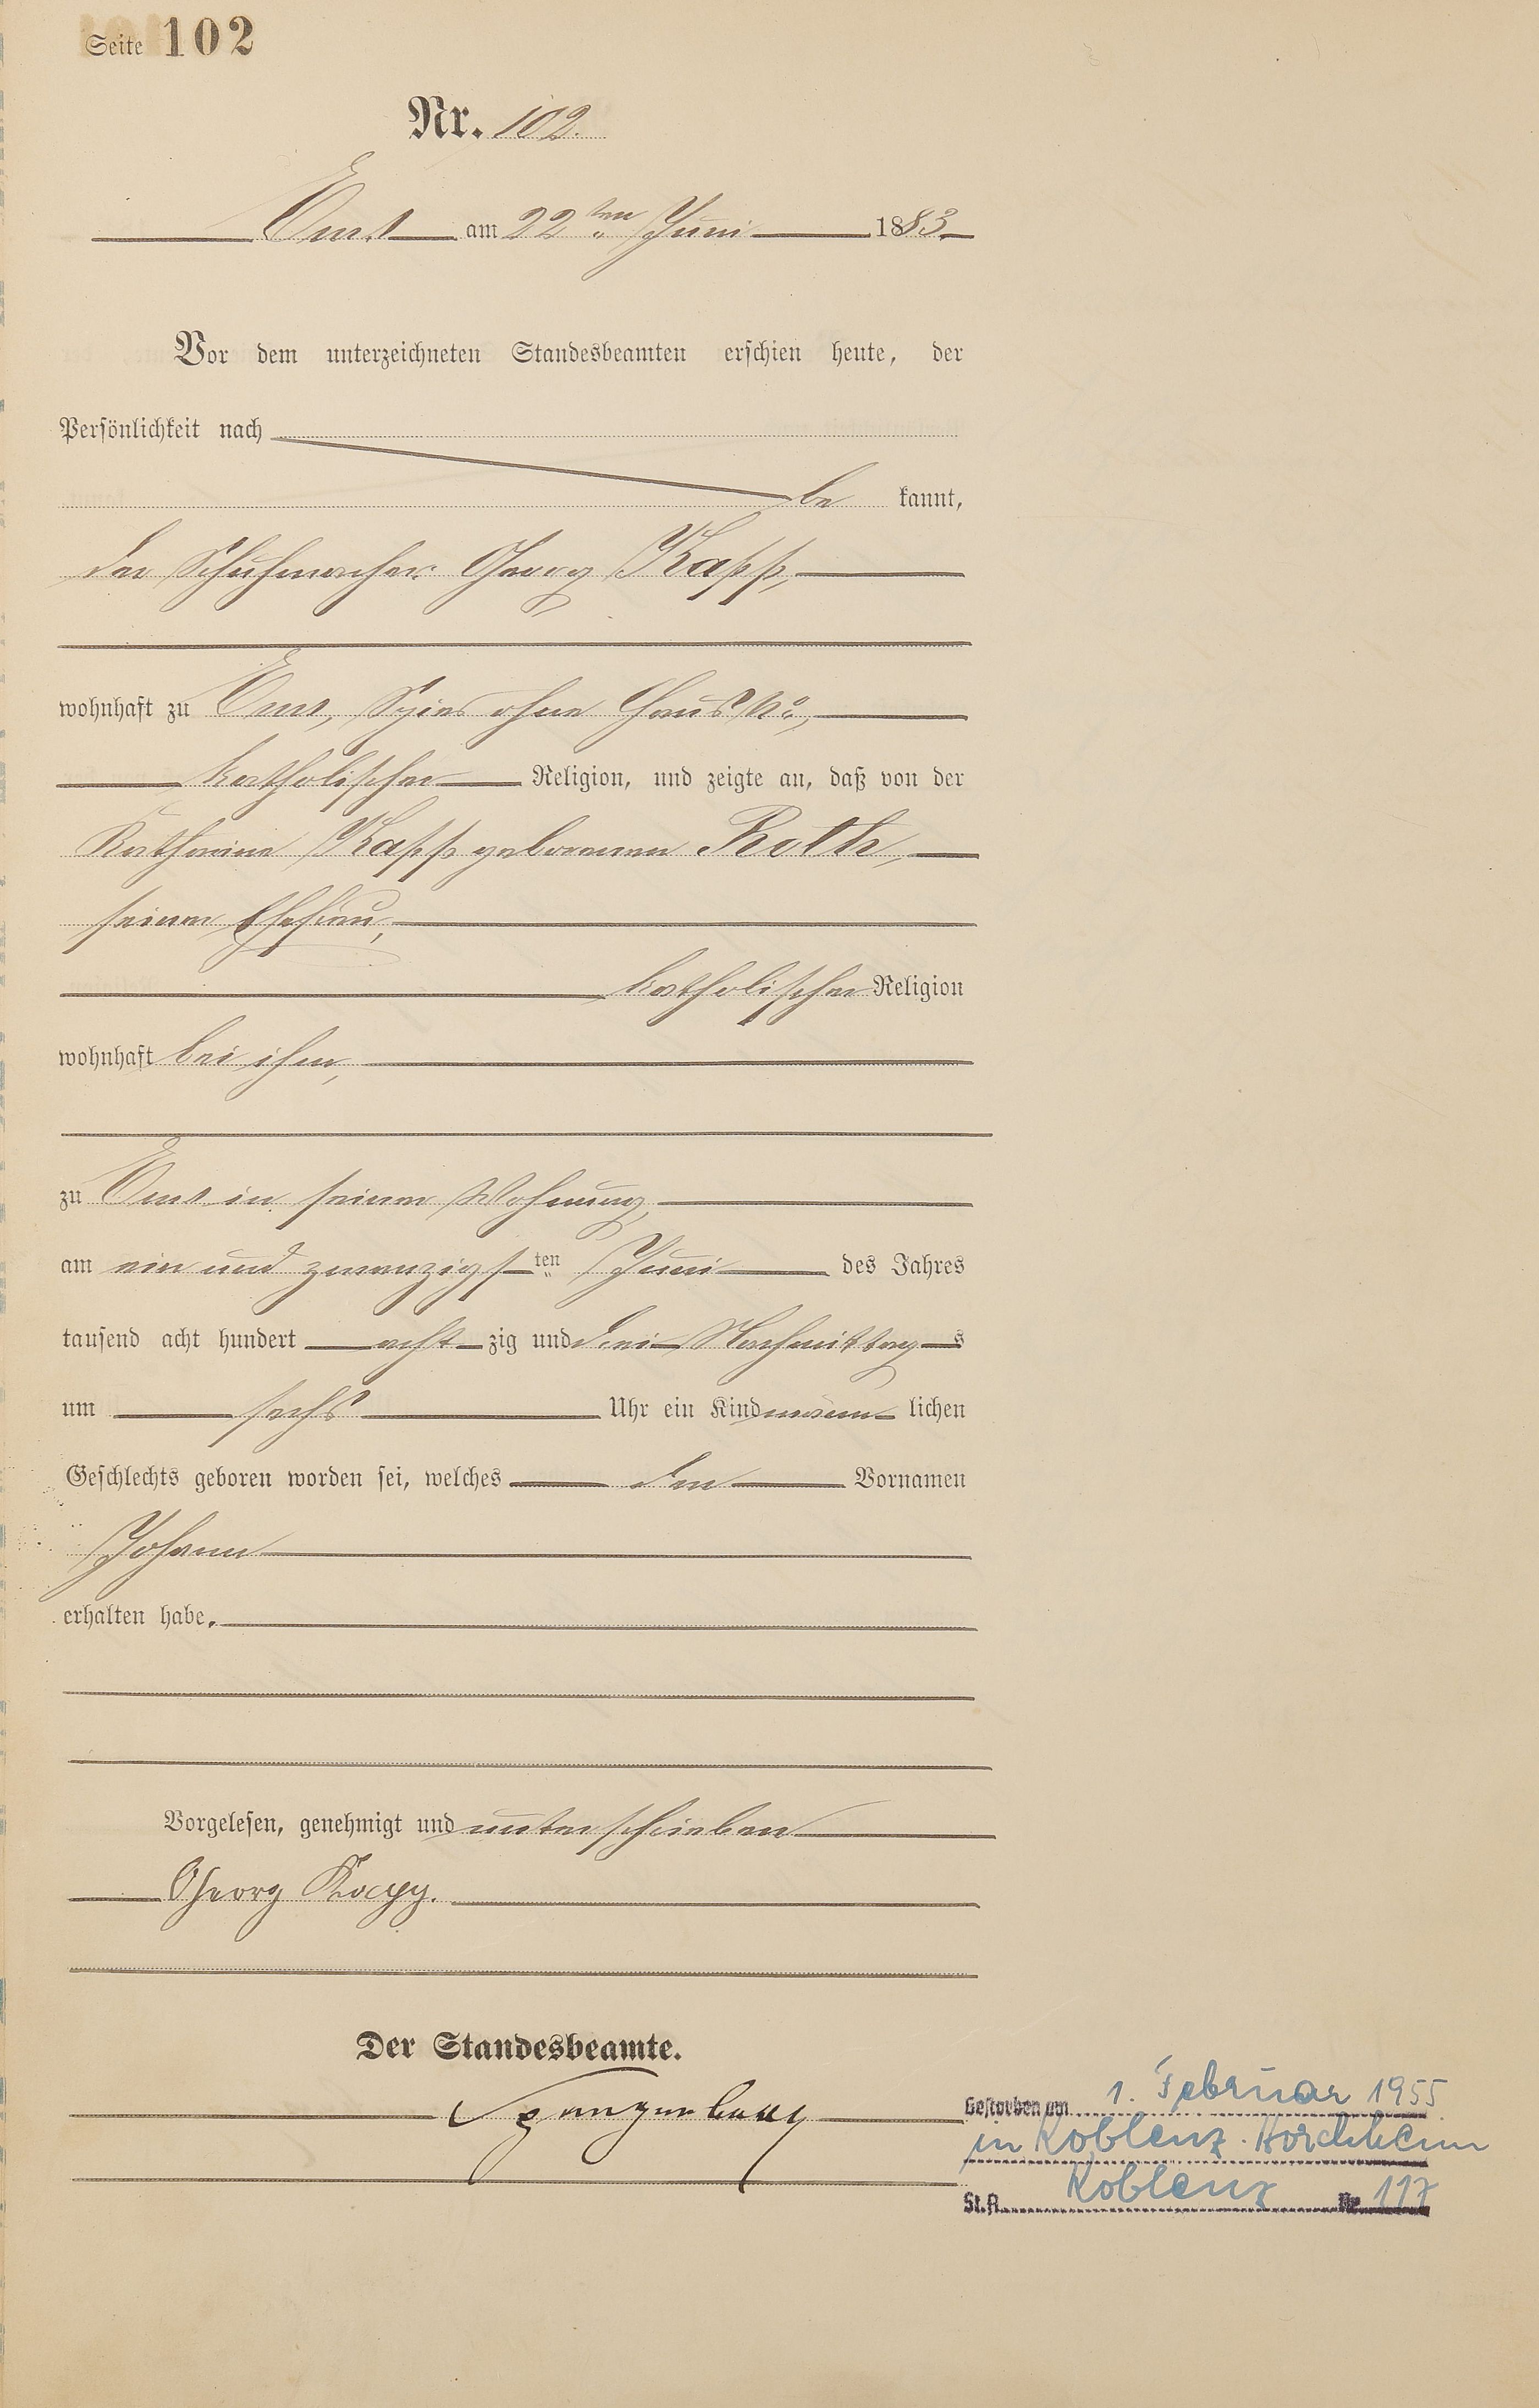 Seite 102
Nr. 102.
Ems am 22ten Juni 1883
Vor dem unterzeichneten Standesbeamten erschien heute, der
Persönlichkeit nach
be kannt,
der Schuhmacher Georg Kapp,
wohnhaft zu Ems, Spies ohne Haus No,
katholischer Religion, und zeigte an, daß von der
Katharina Kapp geborenen Roth,
seiner Ehefrau,
katholischer Religion
wohnhaft bei ihm,
zu Ems in seiner Wohnung,
am ein und zwanzigsten Juni des Jahres
tausend acht hundert acht zig und drei Nachmittags
um sechs Uhr ein Kind männ lichen
Geschlechts geboren worden sei, welches den Vornamen
Johann
erhalten habe.
Vorgelesen, genehmigt und unterschrieben
Georg Kapp.
Der Standesbeamte.
Spangenberg
Gestorben am 1. Februar 1955
in Koblenz-Horchheim
St.A. Koblenz Nr. 117